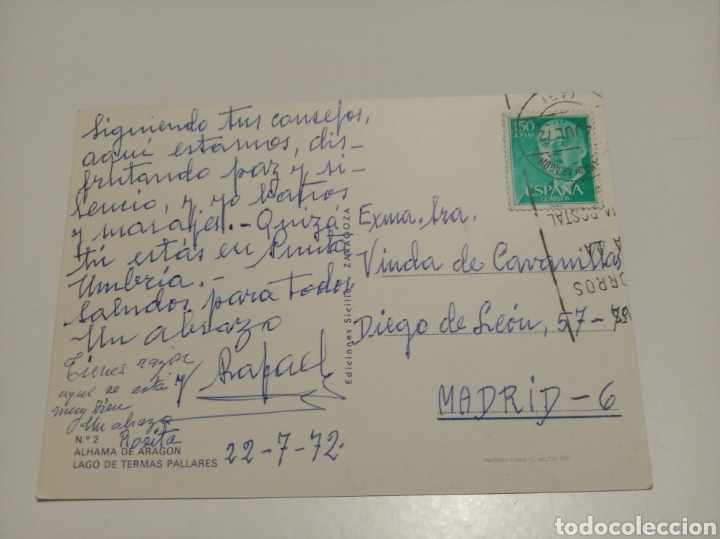 Siguiendo tus consejos,
aquí estamos, dis-
frutando paz y si-
lencio, y yo baños
y masajes.- Quizá
tú estás en Punta
Umbría.-
Saludos para todos
Un abrazo
Rafael
Tienes razón
aquí se está
muy bien
Un abrazo
Rosita
22-7-72.
N.º 2
ALHAMA DE ARAGON
LAGO DE TERMAS PALLARES
Ediciones Sicilia ZARAGOZA
Exma. Sra.
Viuda de Cavanillas
Diego de León, 57-
MADRID-6
1'50
PTAS
ESPAÑA
CORREOS
POSTAL
todocoleccion